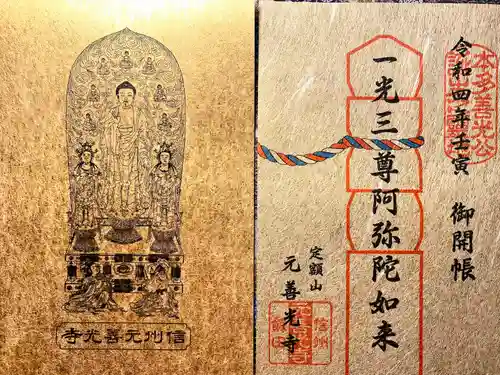 信州元善光寺
令和四年壬寅 御開帳
本多善光公
一光三尊阿弥陀如来
定額山
元善光寺
信州